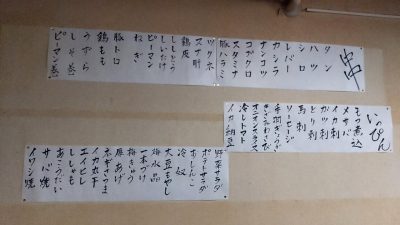 串
タン
ハツ
シロ
レバー
カシラ
ナンコツ
コブクロ
スタミナ
豚ハラミ
ツクネ
スナ肝
鶏皮
ししとう
しいたけ
ピーマン
ねぎ
豚トロ
鶏もも
うずら
しそ巻
ピーマン巻
いっぴん
もつ煮込
〆サバ
イカ刺
ガツ刺
とり刺
馬刺
ソーセージ
手羽ぎょうざ
きざみわさび
オニオンスライス
冷しトマト
イカ納豆
野菜サラダ
ポテトサラダ
おしんこ
冷奴
大豆もやし
海水晶
一本づけ
梅きゅう
厚あげ
ネギさつま
イカ丸干
ししゃも
エイヒレ
あこうだい
サバ焼
イワシ焼